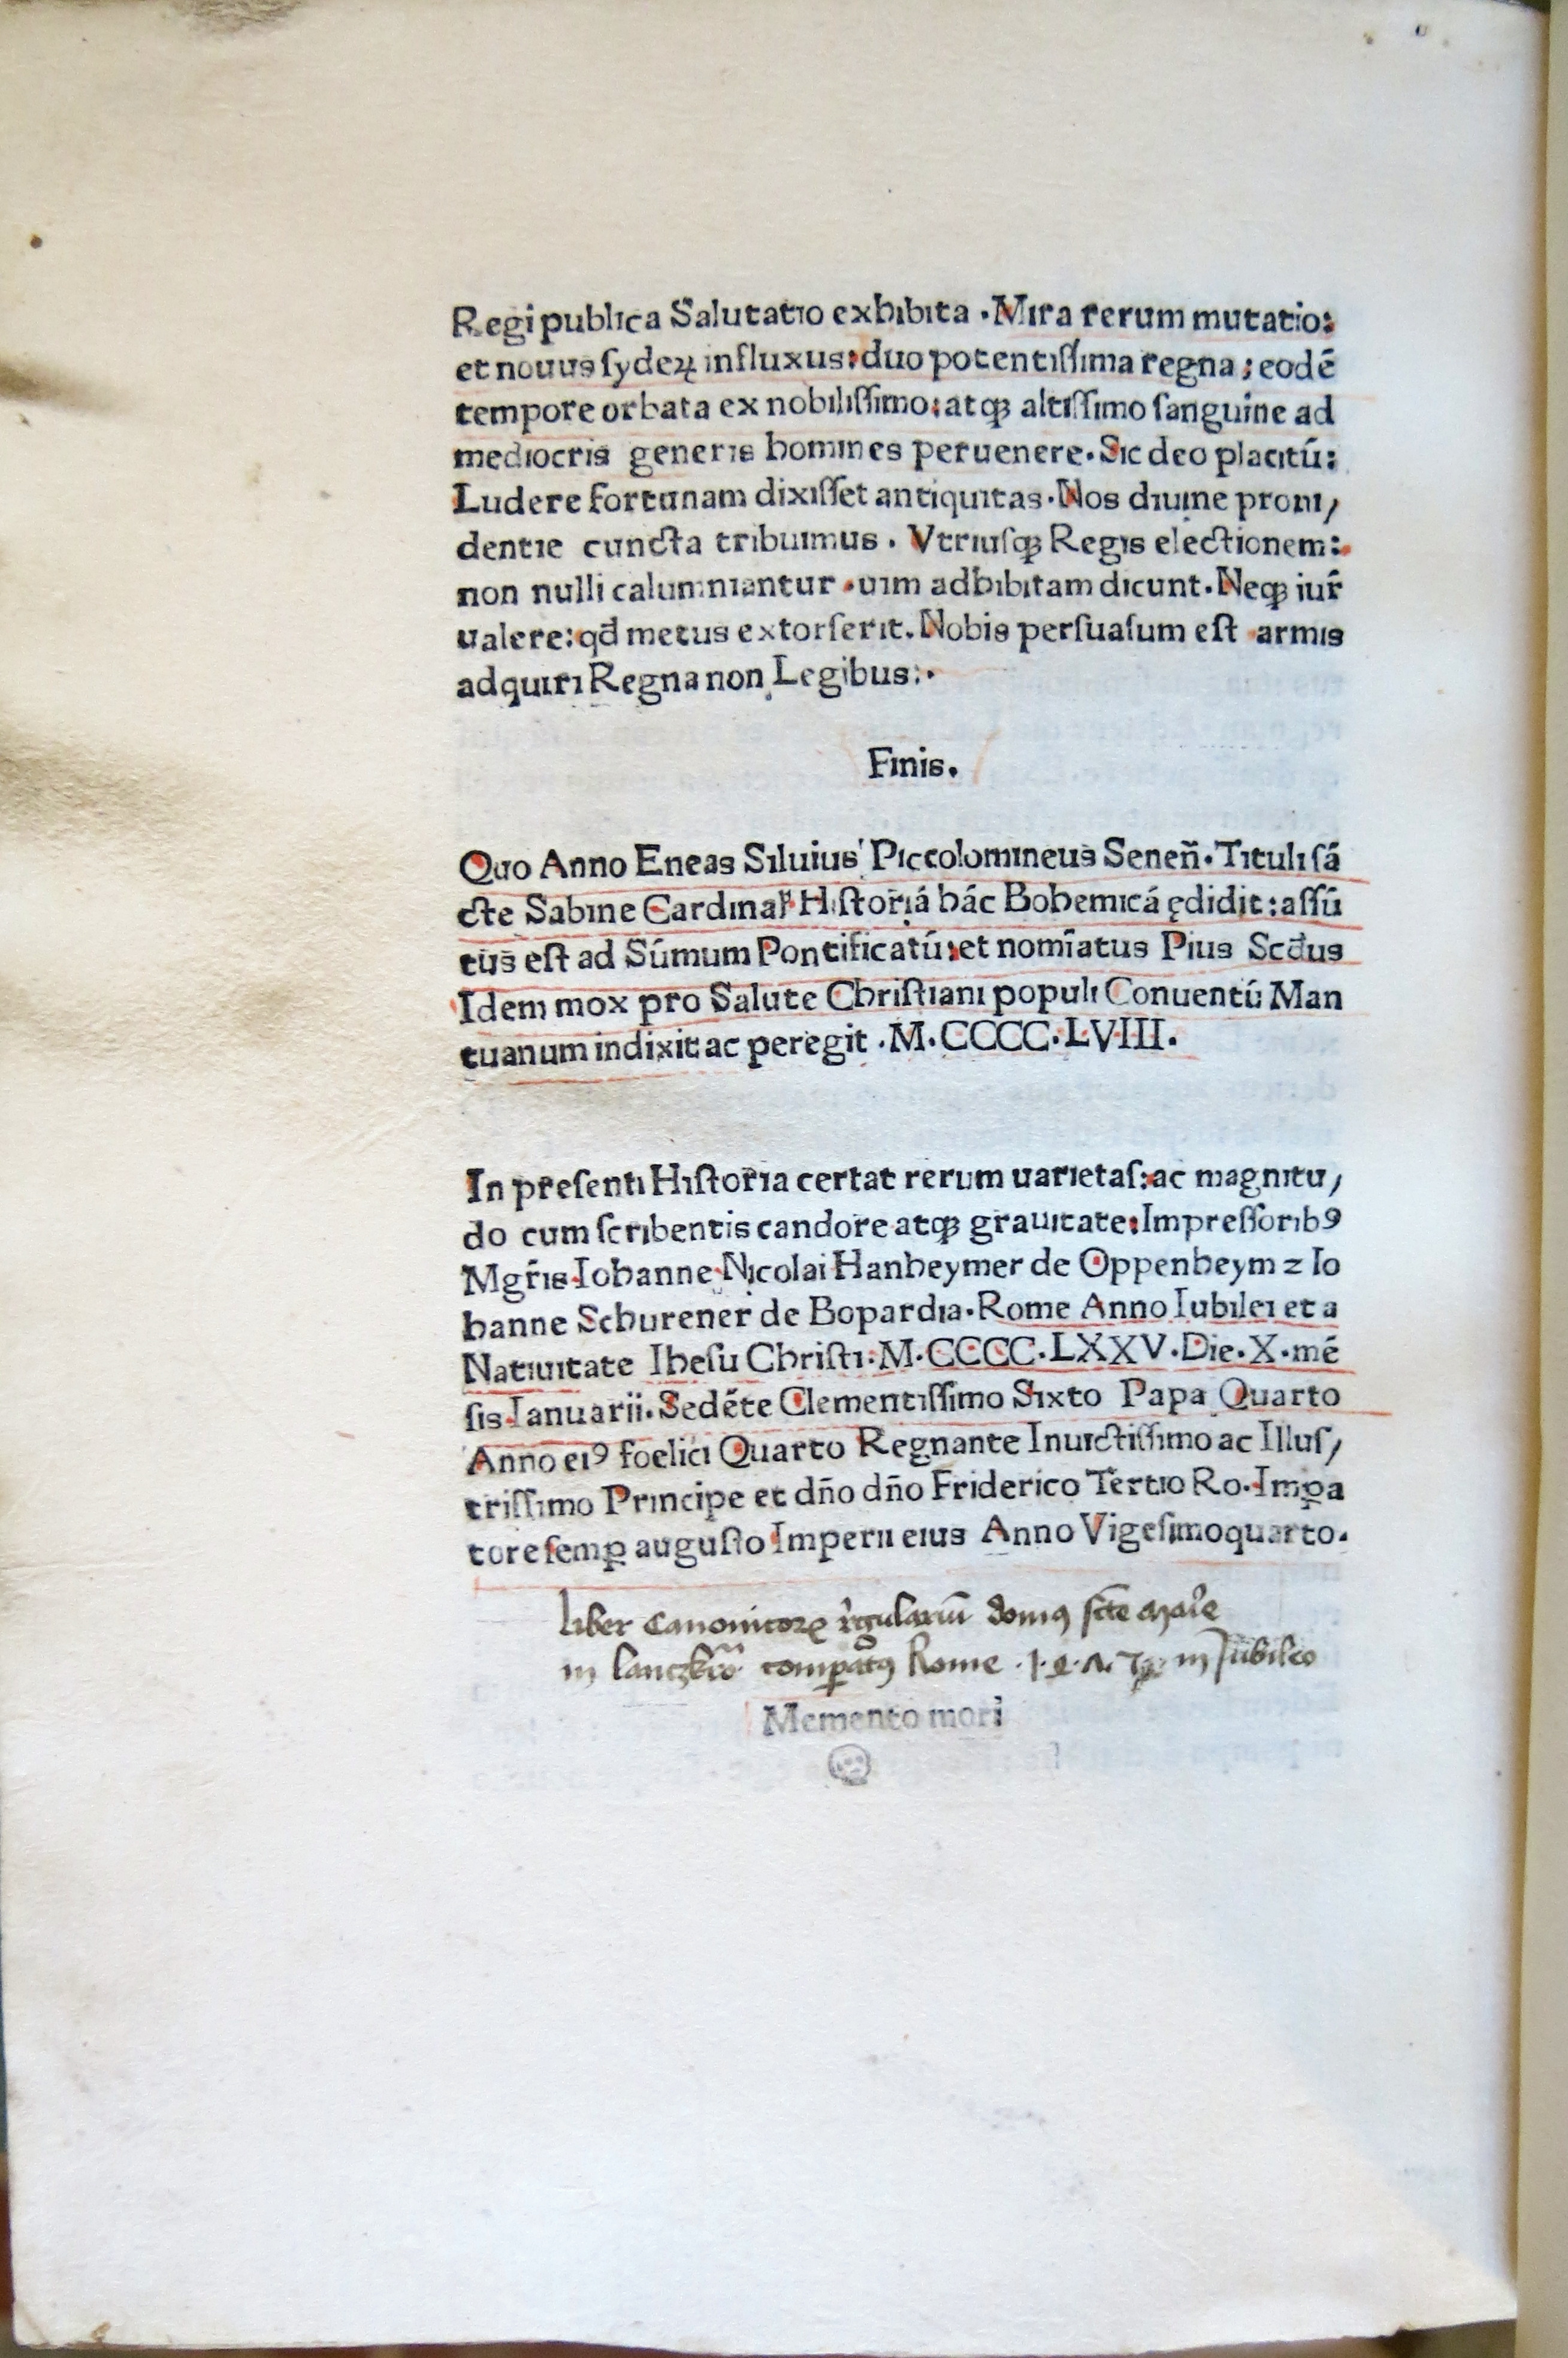 Regi publica Salutatio exhibita . Mira rerum mutatio:
et nouus ſydeꝝ influxus: duo potentiſſima regna ; eodē
tempore orbata ex nobiliſſimo: atqꝫ altiſſimo ſanguine ad
mediocris generis homines peruenere. Sic deo placitū:
Ludere fortunam dixiſſet antiquitas. Nos diuine proui/
dentie cuncta tribuimus . Vtriuſqꝫ Regis electionem:
non nulli calumniantur . uim adhibitam dicunt. Neqꝫ iur̄
ualere: qd̄ metus extorſerit. Nobis perſuaſum eſt armis
adquiri Regna non Legibus:.
Finis.
Quo Anno Eneas Siluius Piccolomineus Seneñ. Tituli ſā
cte Sabine Cardinal Hiſtoriā hāc Bohemicā ędidit: aſſū
tus eſt ad Sūmum Pontificatū: et nomīatus Pius Scd̄us
Idem mox pro Salute Chriſtiani populi Conuentū Man
tuanum indixit ac peregit . M. CCCC. LVIII.
In preſenti Hiſtoria certat rerum uarietaſ: ac magnitu/
do cum ſcribentis candore atqꝫ grauitate: Impreſſoribꝰ
Mgr̄is Iohanne Nicolai Hanheymer de Oppenheym ⁊ Io
hanne Schurener de Bopardia. Rome Anno Iubilei et a
Natiuitate Iheſu Chriſti. M. CCCC. LXXV. Die. X. mē
ſis Ianuarii. Sedēte Clementiſſimo Sixto Papa Quarto
Anno eiꝰ foelici Quarto Regnante Inuictiſſimo ac Illuſ/
triſſimo Principe et dño dño Friderico Tertio Ro. Imꝑa
tore ſemꝑ auguſto Imperii eius Anno Vigeſimoquarto.
Liber Canonicorꝝ r̄gulariū domꝰ ſcte mar̄ie
in lantzkrō comꝑatꝰ Rome in Jubileo
Memento mori